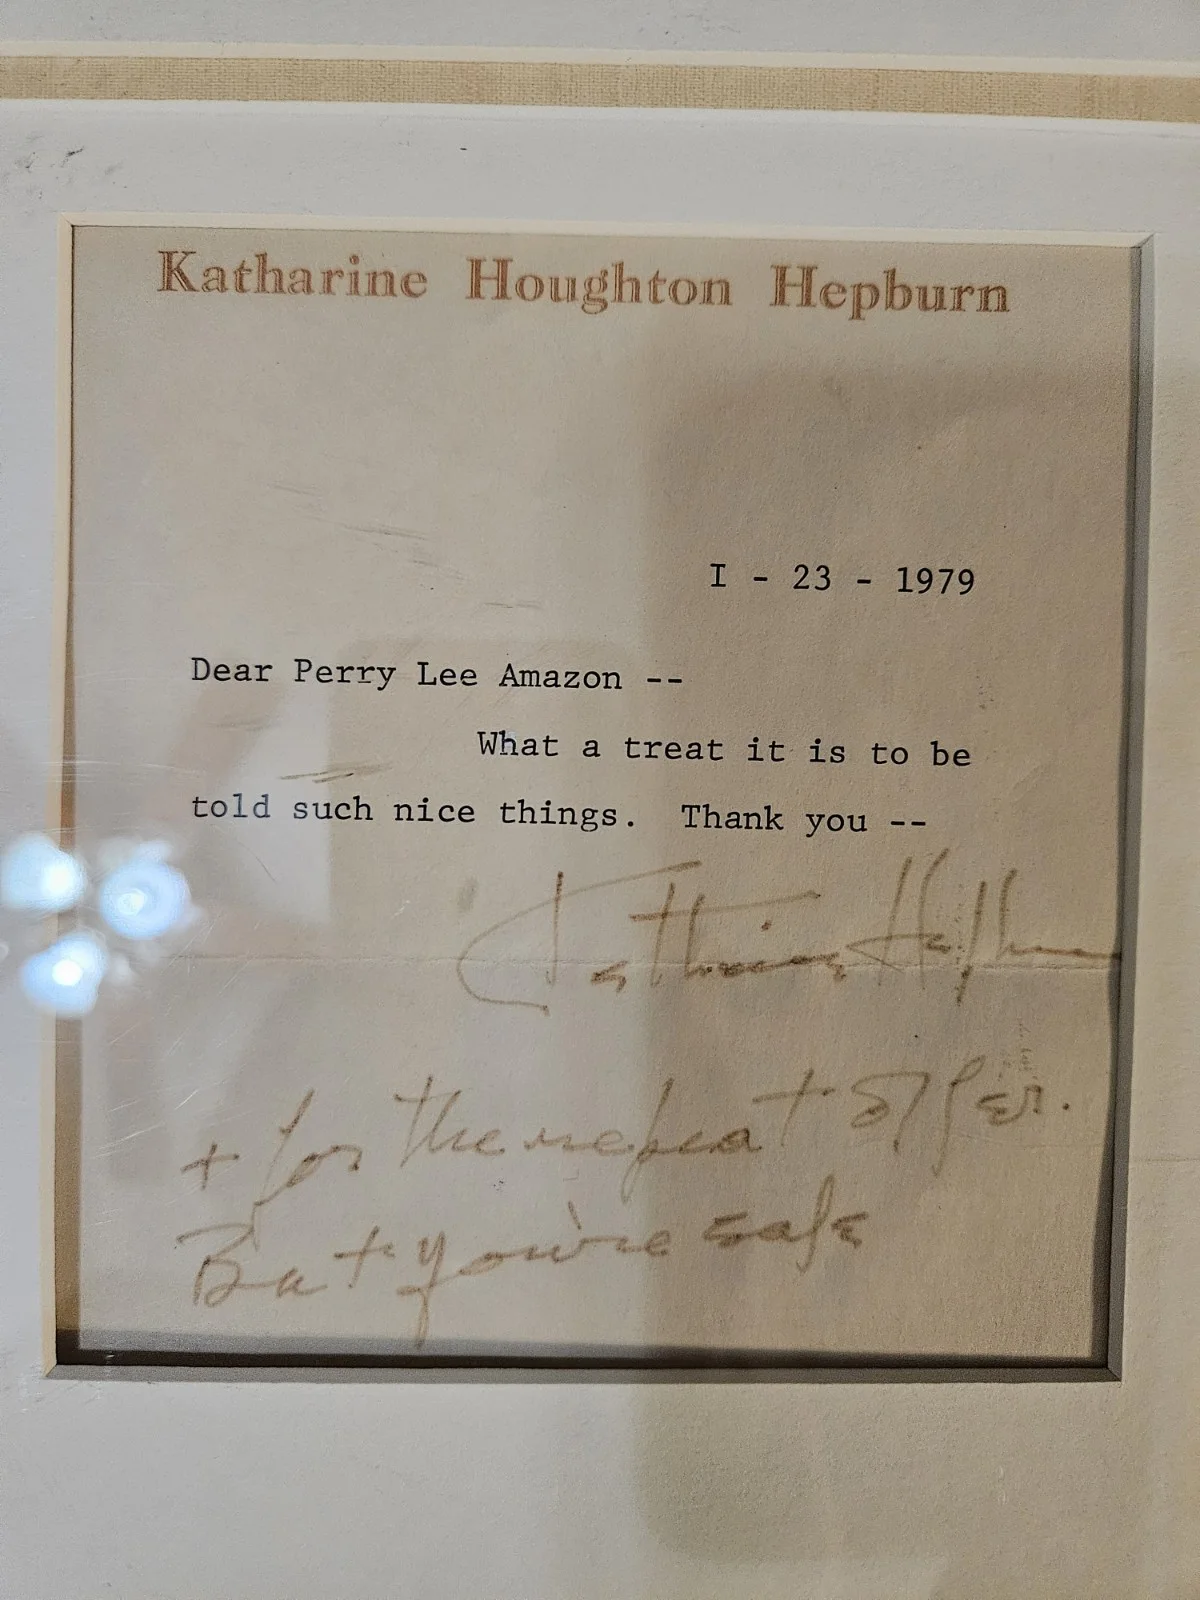 Katharine Houghton Hepburn
I - 23 - 1979
Dear Perry Lee Amazon --
What a treat it is to be
told such nice things.  Thank you --
Katharine Hepburn
+ for the repeat offer.
But you're safe